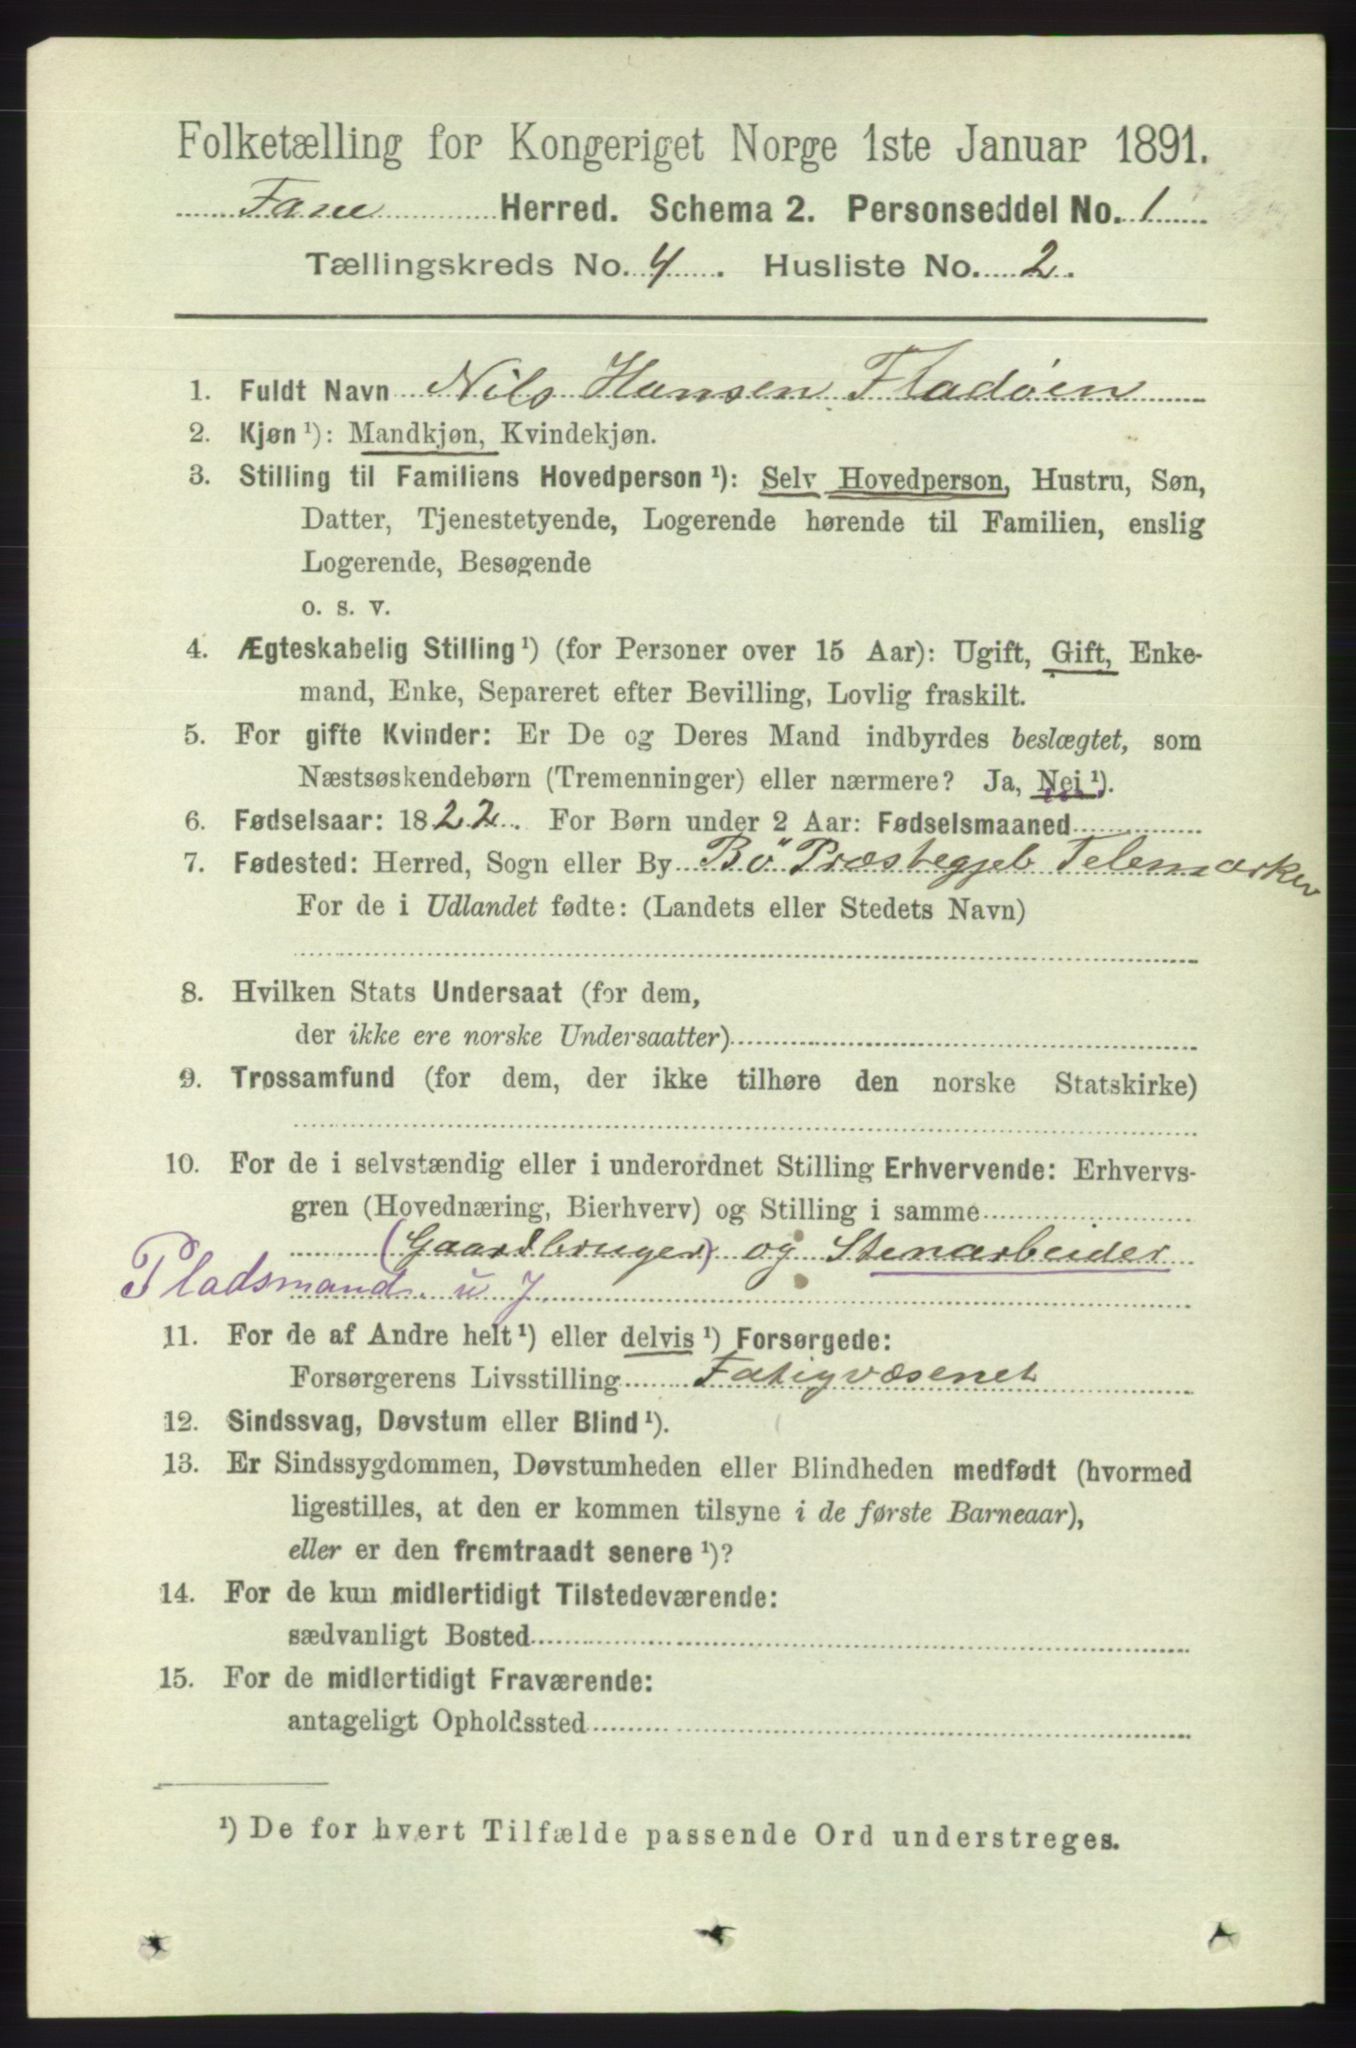 Folketælling for Kongeriget Norge 1ste Januar 1891.
Fane Herred. Schema 2. Personseddel No. 1
Tællingskreds No. 4. Husliste No. 2.
1. Fuldt Navn Nils Hansen Fladøen
2. Kjøn ¹): Mandkjøn, Kvindekjøn.
3. Stilling til Familiens Hovedperson ¹): Selv Hovedperson, Hustru, Søn,
Datter, Tjenestetyende, Logerende hørende til Familien, enslig
Logerende, Besøgende
o. s. v.
4. Ægteskabelig Stilling ¹) (for Personer over 15 Aar): Ugift, Gift, Enke-
mand, Enke, Separeret efter Bevilling, Lovlig fraskilt.
5. For gifte Kvinder: Er De og Deres Mand indbyrdes beslægtet, som
Næstsøskendebørn (Tremenninger) eller nærmere? Ja, Nei ¹).
6. Fødselsaar: 1822. For Børn under 2 Aar: Fødselsmaaned
7. Fødested: Herred, Sogn eller By Bö Præstegjeb Telemarken
For de i Udlandet fødte: (Landets eller Stedets Navn)
8. Hvilken Stats Undersaat (for dem,
der ikke ere norske Undersaatter)
9. Trossamfund (for dem, der ikke tilhøre den norske Statskirke)
10. For de i selvstændig eller i underordnet Stilling Erhvervende: Erhvervs-
gren (Hovednæring, Bierhverv) og Stilling i samme
(Gaardbruger) og Stenarbeider
Pladsmand. u J
11. For de af Andre helt ¹) eller delvis ¹) Forsørgede:
Forsørgerens Livsstilling Fatigvæsenet
12. Sindssvag, Døvstum eller Blind ¹).
13. Er Sindssygdommen, Døvstumheden eller Blindheden medfødt (hvormed
ligestilles, at den er kommen tilsyne i de første Barneaar),
eller er den fremtraadt senere ¹)?
14. For de kun midlertidigt Tilstedeværende:
sædvanligt Bosted
15. For de midlertidigt Fraværende:
antageligt Opholdssted
¹) De for hvert Tilfælde passende Ord understreges.